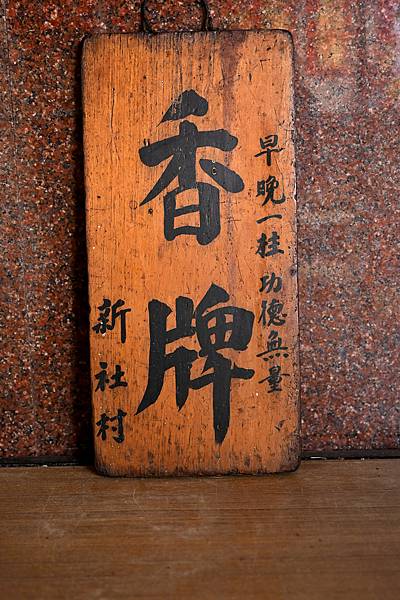 早晚一柱功德無量
香牌
新社村